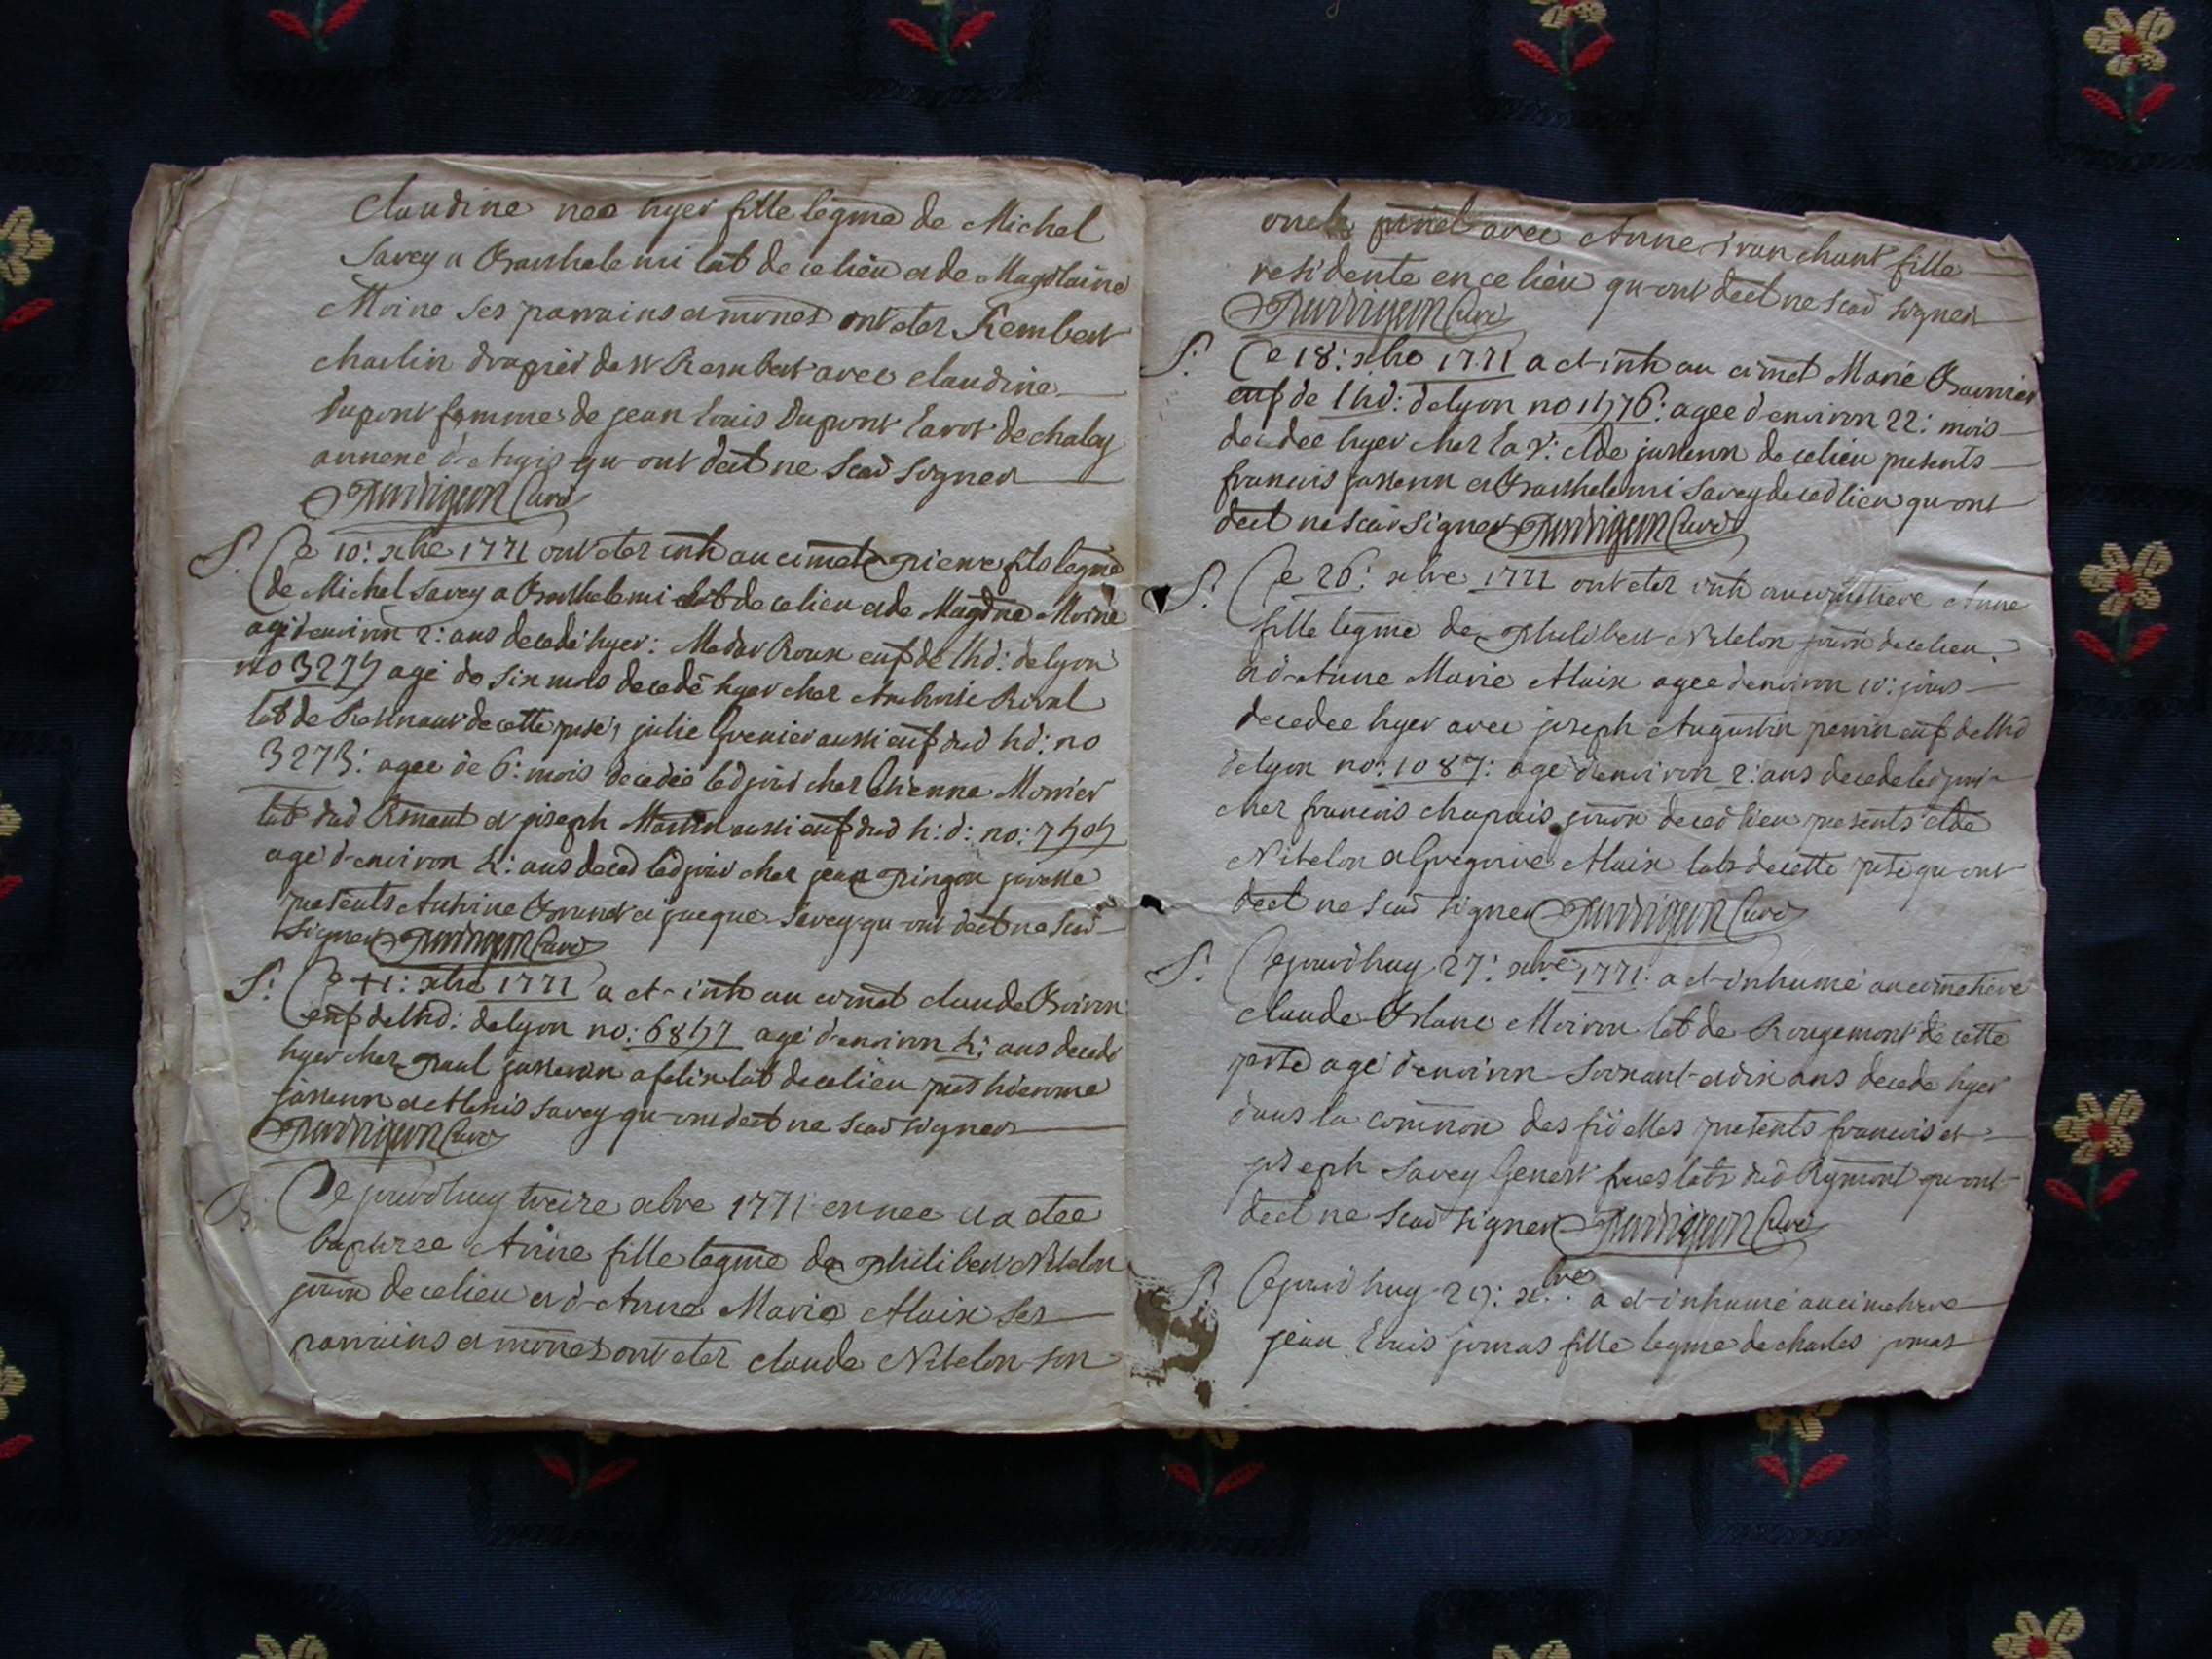 Claudine nee hyer fille legme de Michel
Savey a Barthelemi lab de ce lieu et de Magdlaine
Moine ses parrains et mones ont eter Rembert
charlin drapier de st Rembert avec claudine
Dupont femme de jean louis Dupont labor de chaley
annexe d'Argis qu-ont deet ne scav signer
curé
S. Ce 10: xbre 1771 ont eter inh au cimet pierre fils legme
de Michel Savey a Barthelemi lab de ce lieu et de Magdne Moine
agé d'environ 2: ans decedé hyer: Medar Roux enf de lhd: de lyon
no 3275 agé de six mois decedé hyer cher Anthoine Rival
lab de cette pse, julie Grenier aussi enf dud hd: no
3273: agee de 6: mois decedée led jour cher Etienne Monier
lab dud et joseph Martin aussi enf dud h: d: no: 7505
agé d'environ 4: ans deced led jour cher jean pingon
presents Anthoine Brunet et jacque Savey qu-ont deet ne scav
signer curé
S. Ce 11: xbre 1771 a et-inh au cimet claude Boiron
enf de lhd: de lyon no: 6857 agé d'environ 4: ans decede
hyer cher paul jasseron a felix lab de ce lieu
jasseron et Savey qu-ont deet ne scav signer
curé
B. Cejourdhuy treize xbre 1771 est nee et a etee
baptizee Anne fille legme de philibert Nitelon
journ de ce lieu et d-Anne Marie Alaix ses
parrains et mones ont eter claude Nitelon son
oncle avec Anne fille
residente en ce lieu qu-ont deet ne scav signer
curé
S. Ce 18: xbre 1771 a et-inh au cimet Marie
enf de lhd: de lyon no 1576: agee d'environ 22: mois
decedee hyer cher la v: Clde jasseron de ce lieu presents
francois jasseron et Barthelemi Savey de ced lieu qu-ont
deet ne scav signer curé
S. Ce 26: xbre 1771 ont eter inh au cimetiere Anne
fille legme de philibert Nitelon journ de ce lieu
et d-Anne Marie Alaix agee d'environ 10: jours
decedee hyer avec joseph Augustin perrin enf de lhd
de lyon no: 1087: agé d'environ 2: ans decede led jour
cher francois chapuis journ de ced lieu presents clde
Nitelon et Gregoire Alaix labs de cette pse qu-ont
deet ne scav signer curé
S. Cejourdhuy 27: xbre 1771: a et-inhumé au cimetiere
claude Blanc Moiron lab de Rougemont de cette
psse agé d'environ soixant-et dix ans decede hyer
dans la commion des fidelles presents francois et
joseph Savey Genest freres labs dud Rgmont qu-ont
deet ne scav signer curé
S. Cejourdhuy 29: xbre a et-inhumé au cimetiere
jean louis jomas fille legme de charles jomas